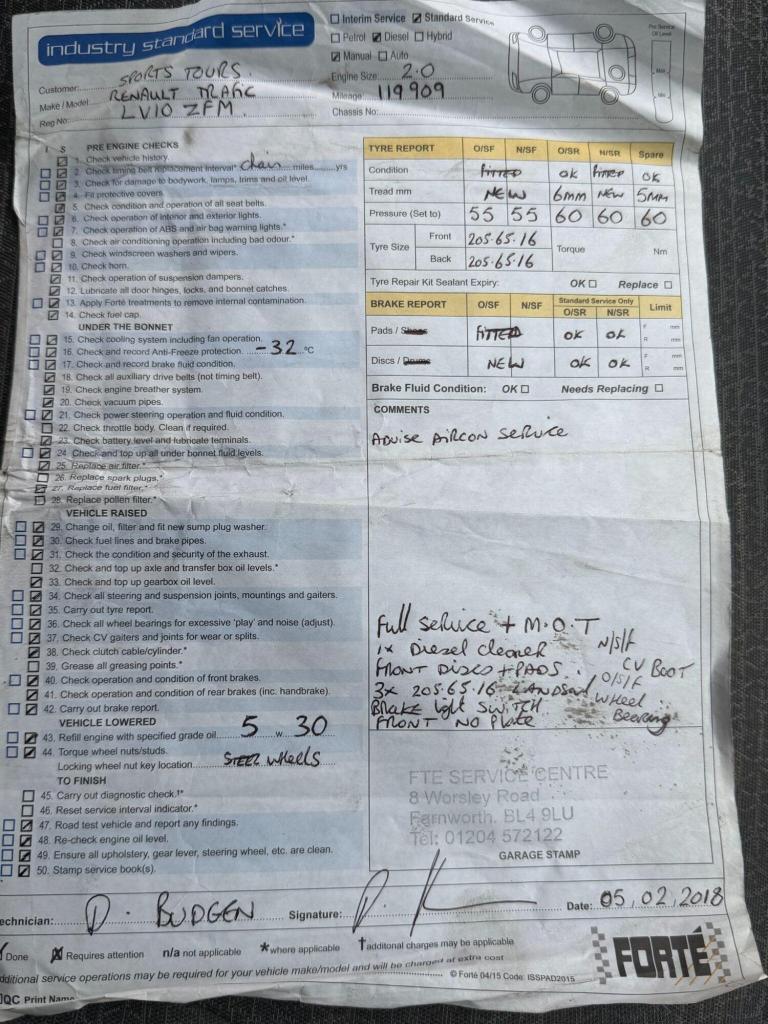 industry standard service
Interim Service Standard Service
Petrol Diesel Hybrid
Manual Auto
Customer: SPORTS TOURS.
Engine Size 2.0
Make / Model RENAULT TRAFIC
Mileage: 119909
Reg No: LV10 ZFM
Chassis No:
Pre Service
Oil Level
Max
Min
I S PRE ENGINE CHECKS
1. Check vehicle history.
2. Check timing belt replacement interval* chain miles yrs
3. Check for damage to bodywork, lamps, trims and oil level.
4. Fit protective covers.
5. Check condition and operation of all seat belts.
6. Check operation of interior and exterior lights.
7. Check operation of ABS and air bag warning lights.*
8. Check air conditioning operation including bad odour.*
9. Check windscreen washers and wipers.
10. Check horn.
11. Check operation of suspension dampers.
12. Lubricate all door hinges, locks, and bonnet catches.
13. Apply Forté treatments to remove internal contamination.
14. Check fuel cap.
UNDER THE BONNET
15. Check cooling system including fan operation.
16. Check and record Anti-Freeze protection. -32 °C
17. Check and record brake fluid condition.
18. Check all auxiliary drive belts (not timing belt).
19. Check engine breather system.
20. Check vacuum pipes.
21. Check power steering operation and fluid condition.
22. Check throttle body. Clean if required.
23. Check battery level and lubricate terminals.
24. Check and top up all under bonnet fluid levels.
25. Replace air filter.*
26. Replace spark plugs.*
27. Replace fuel filter.*
28. Replace pollen filter.*
VEHICLE RAISED
29. Change oil, filter and fit new sump plug washer.
30. Check fuel lines and brake pipes.
31. Check the condition and security of the exhaust.
32. Check and top up axle and transfer box oil levels.*
33. Check and top up gearbox oil level.
34. Check all steering and suspension joints, mountings and gaiters.
35. Carry out tyre report.
36. Check all wheel bearings for excessive 'play' and noise (adjust).
37. Check CV gaiters and joints for wear or splits.
38. Check clutch cable/cylinder.*
39. Grease all greasing points.*
40. Check operation and condition of front brakes.
41. Check operation and condition of rear brakes (inc. handbrake).
42. Carry out brake report.
VEHICLE LOWERED
43. Refill engine with specified grade oil 5 w 30
44. Torque wheel nuts/studs.
Locking wheel nut key location STEEL wheels
TO FINISH
45. Carry out diagnostic check.†*
46. Reset service interval indicator.*
47. Road test vehicle and report any findings.
48. Re-check engine oil level.
49. Ensure all upholstery, gear lever, steering wheel, etc. are clean.
50. Stamp service book(s).
TYRE REPORT O/SF N/SF O/SR N/SR Spare
Condition FITTED OK FITTED OK
Tread mm NEW 6mm NEW 5MM
Pressure (Set to) 55 55 60 60 60
Tyre Size Front 205.65.16 Torque Nm
Back 205.65.16
Tyre Repair Kit Sealant Expiry: OK Replace
BRAKE REPORT O/SF N/SF Standard Service Only O/SR N/SR Limit
Pads / Shoes FITTED OK OK F mm R mm
Discs / Drums NEW OK OK F mm R mm
Brake Fluid Condition: OK Needs Replacing
COMMENTS
ADVISE AIRCON SERVICE
Full Service + M.O.T
1x Diesel cleaner
FRONT DISCS + PADS.
3x 205.65.16
BRAKE light SWITCH
FRONT NO PLATE
N/S/F
CV BOOT
O/S/F
Wheel
Bearing
FTE SERVICE CENTRE
8 Worsley Road
Farnworth. BL4 9LU
Tel: 01204 572122
GARAGE STAMP
echnician: D. BUDGEN Signature: Date: 05,02,2018
Done Requires attention n/a not applicable *where applicable †additonal charges may be applicable
dditional service operations may be required for your vehicle make/model and will be charged at extra cost
© Forté 04/15 Code: ISSPAD2015
FORTÉ
QC Print Name